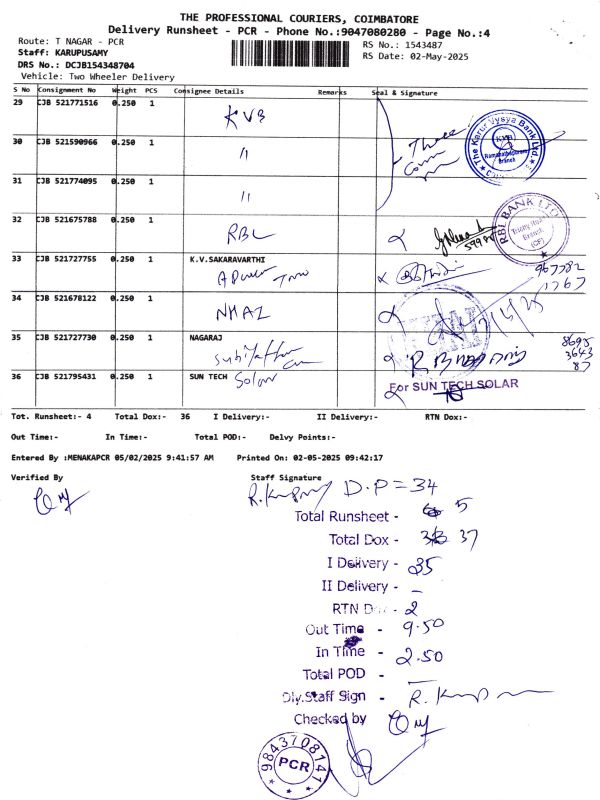 THE PROFESSIONAL COURIERS, COIMBATORE
Delivery Runsheet - PCR - Phone No.:9047080280 - Page No.:4
Route: T NAGAR - PCR
RS No.: 1543487
Staff: KARUPUSAMY
RS Date: 02-May-2025
DRS No.: DCJB154348704
Vehicle: Two Wheeler Delivery
S No Consignment No Weight PCS Consignee Details Remarks Seal & Signature
29 CJB 521771516 0.250 1 KVB
The Karur Vysya Bank Ltd
KVB
Branch
30 CJB 521590966 0.250 1 "
Three
31 CJB 521774095 0.250 1 "
32 CJB 521675788 0.250 1 RBL
RBL BANK LTD
Branch
33 CJB 521727755 0.250 1 K.V.SAKARAVARTHI
34 CJB 521678122 0.250 1
35 CJB 521727730 0.250 1 NAGARAJ
8695
3643
87
36 CJB 521795431 0.250 1 SUN TECH Solar
For SUN TECH SOLAR
Tot. Runsheet:- 4 Total Dox:- 36 I Delivery:- II Delivery:- RTN Dox:-
Out Time:- In Time:- Total POD:- Delvy Points:-
Entered By :MENAKAPCR 05/02/2025 9:41:57 AM Printed On: 02-05-2025 09:42:17
Verified By Staff Signature
D.P = 34
Total Runsheet - 5
Total Dox - 37
I Delivery - 35
II Delivery - –
RTN Dox - 2
Out Time - 9.50
In Time - 2.50
Total POD - –
Dly.Staff Sign -
Checked by
9843708141
PCR